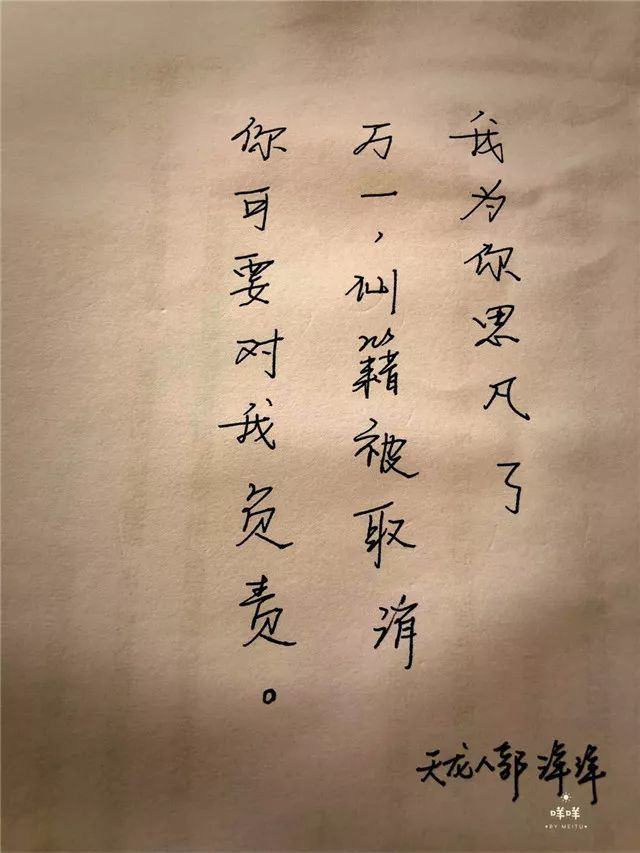 我为你思凡了
万一，仙籍被取消
你可要对我负责。
天龙人郭洋洋
咩咩
•BY MEITU•